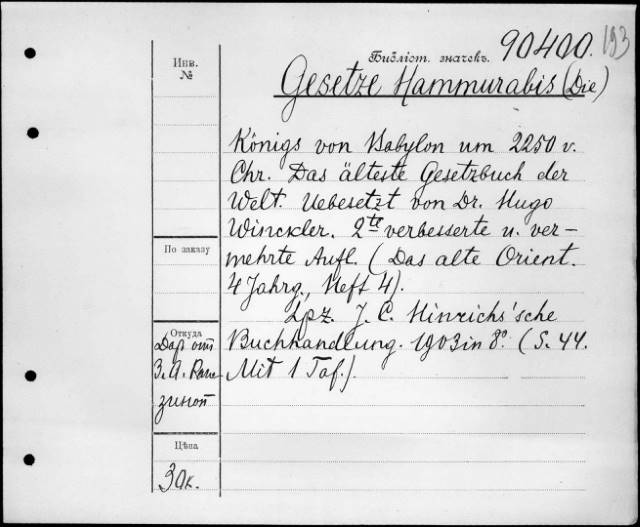 193
Библіот. значекъ. 90400.
Gesetze Hammurabis (Die)
Königs von Babylon um 2250 v.
Chr. Das älteste Gesetzbuch der
Welt. Uebesetzt von Dr. Hugo
Winckler. 2te verbesserte u. ver-
mehrte Aufl. (Das alte Orient.
4 Jahrg., Heft 4).
Lpz. J. C. Hinrichs'sche
Buchhandlung. 1903 in 8º. (S. 44.
Mit 1 Taf.).
Инв.
№
По заказу
Откуда
Даръ отъ
З. А.
Цѣна
30к.